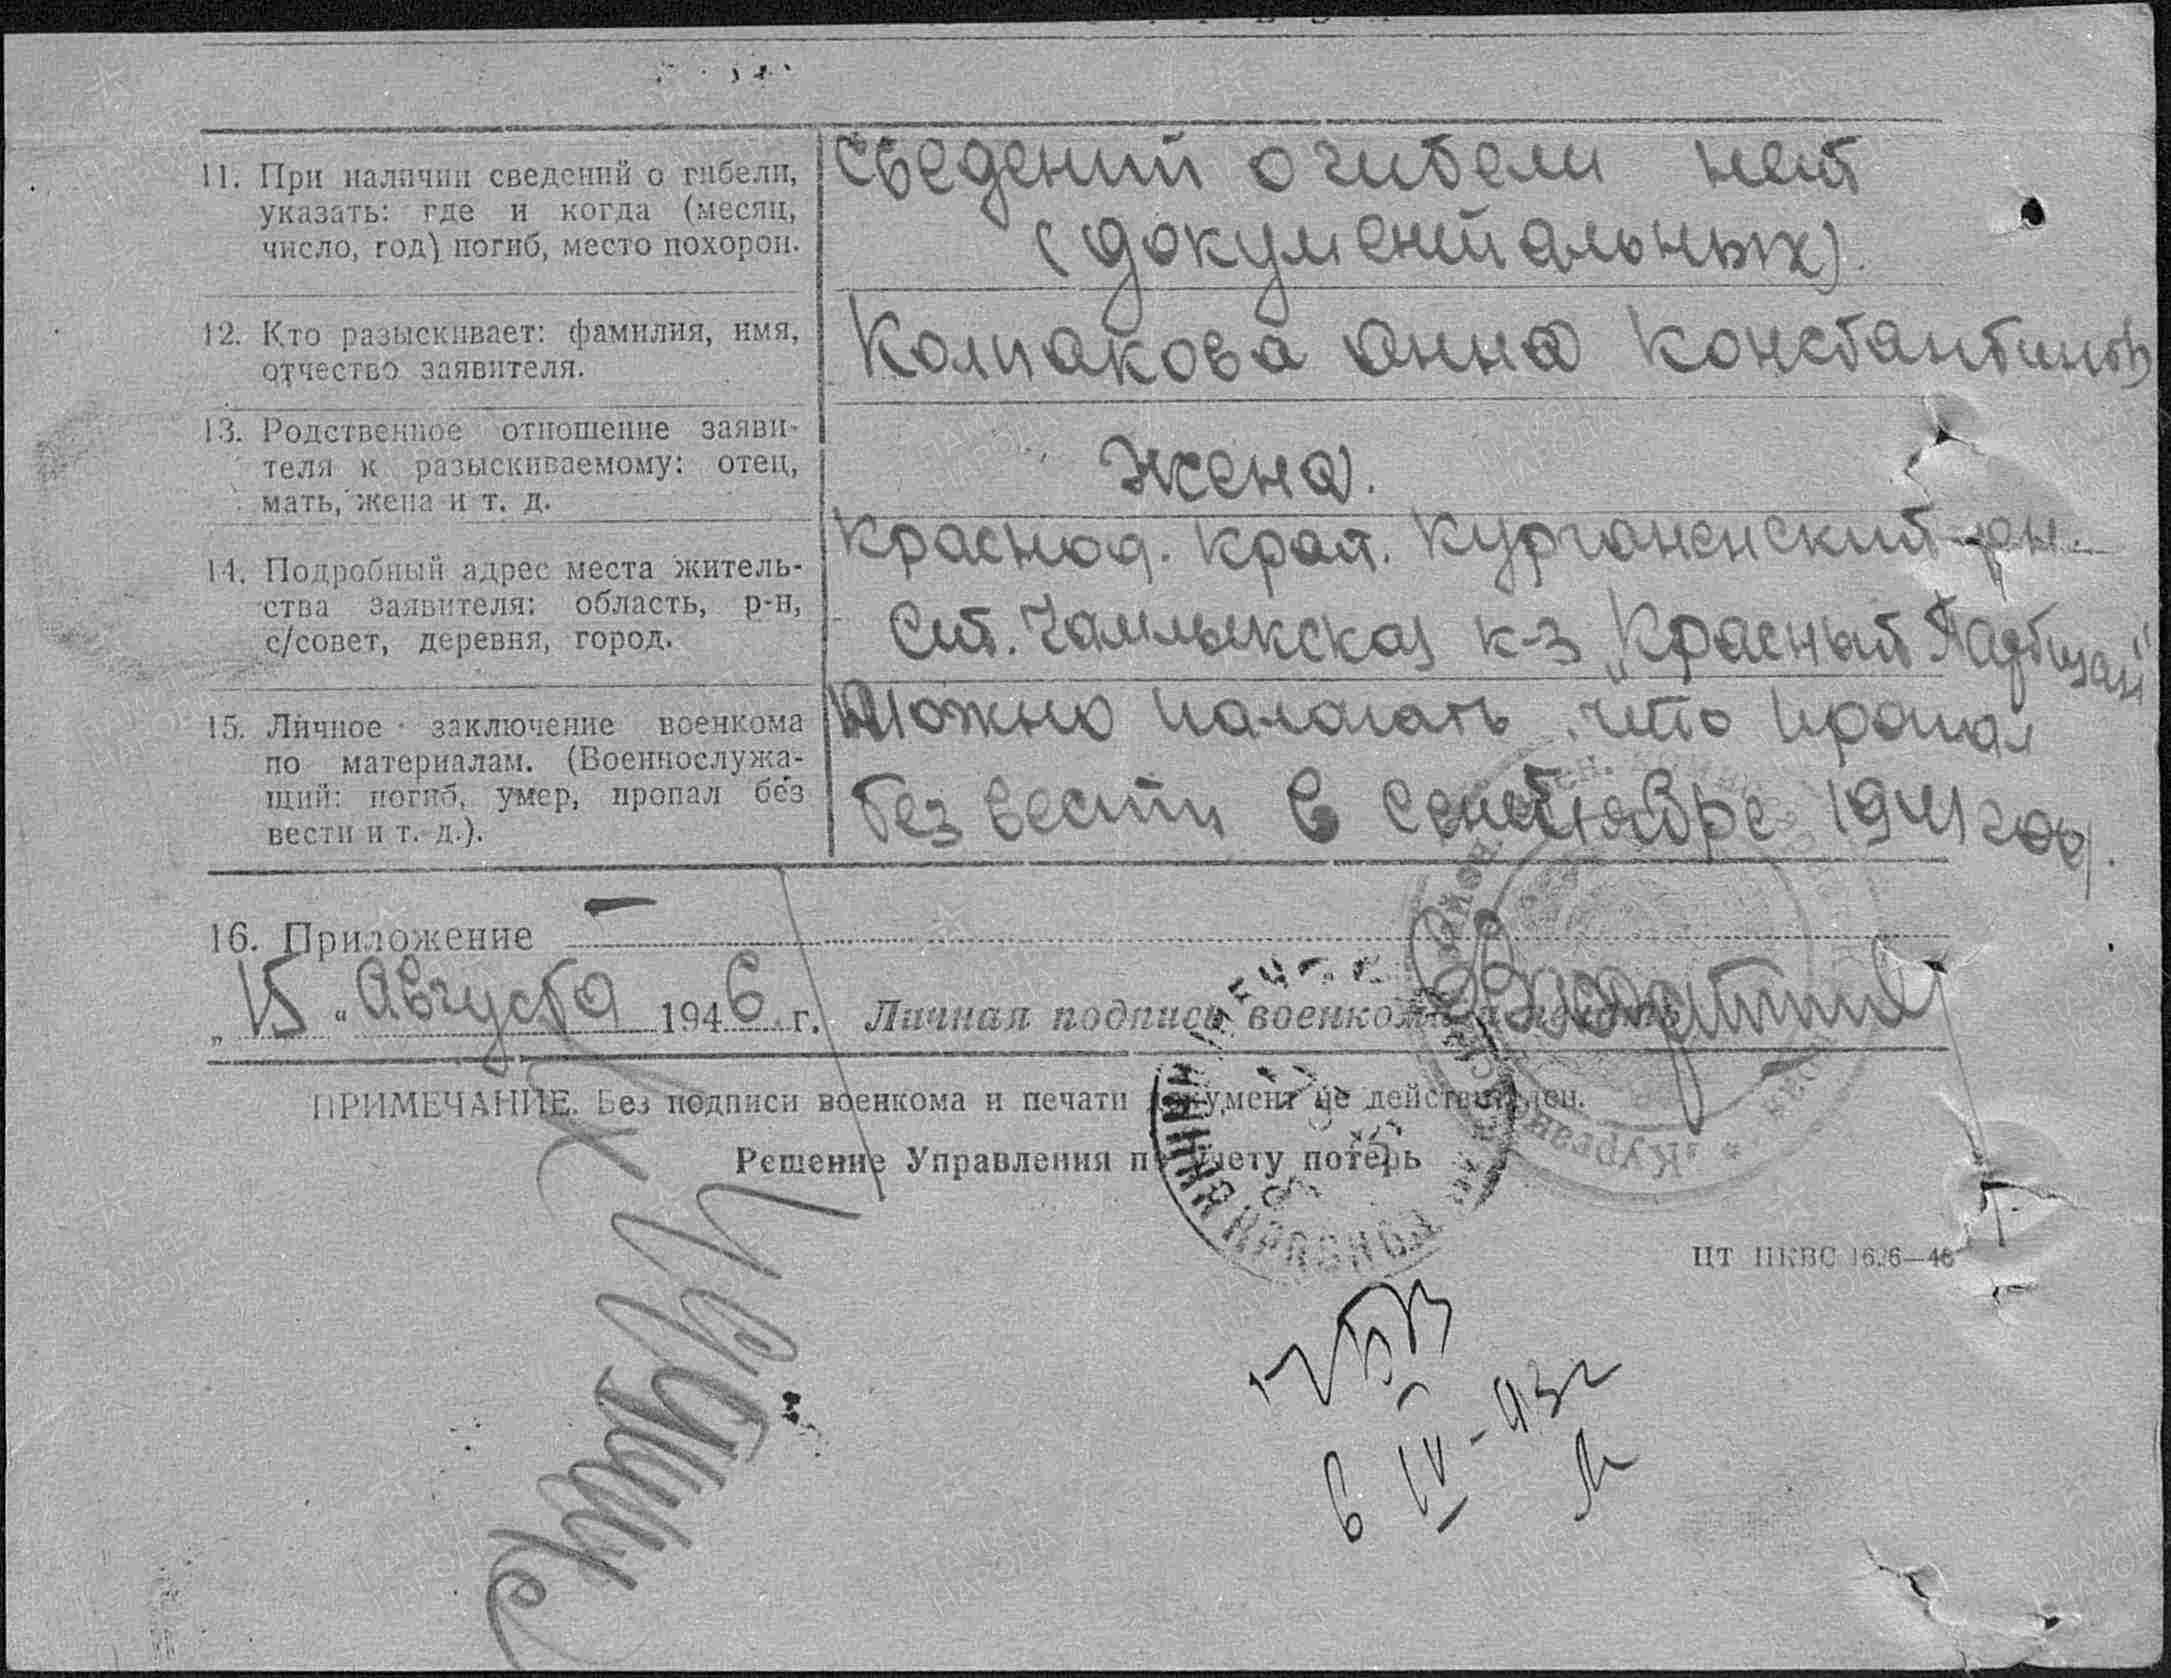 11. При наличии сведений о гибели,
указать: где и когда (месяц,
число, год) погиб, место похорон.
Сведений о гибели нет
(документальных).
12. Кто разыскивает: фамилия, имя,
отчество заявителя.
Колпакова Анна Константинов
13. Родственное отношение заяви-
теля к разыскиваемому: отец,
мать, жена и т. д.
Жена.
14. Подробный адрес места житель-
ства заявителя: область, р-н,
с/совет, деревня, город.
Краснод. край. Курганенский р-н.
Ст. Чамлыкская к-з „Красный
15. Личное заключение военкома
по материалам. (Военнослужа-
щий: погиб, умер, пропал без
вести и т. д.).
Можно полагать, что пропал
без вести в сентябре 1941 году.
16. Приложение —
„15“ Августа 1946 г. Личная подпись военкома
ПРИМЕЧАНИЕ. Без подписи военкома и печати документ не действителен.
Решение Управления по учету потерь
ЦТ НКВС
в IV-43г